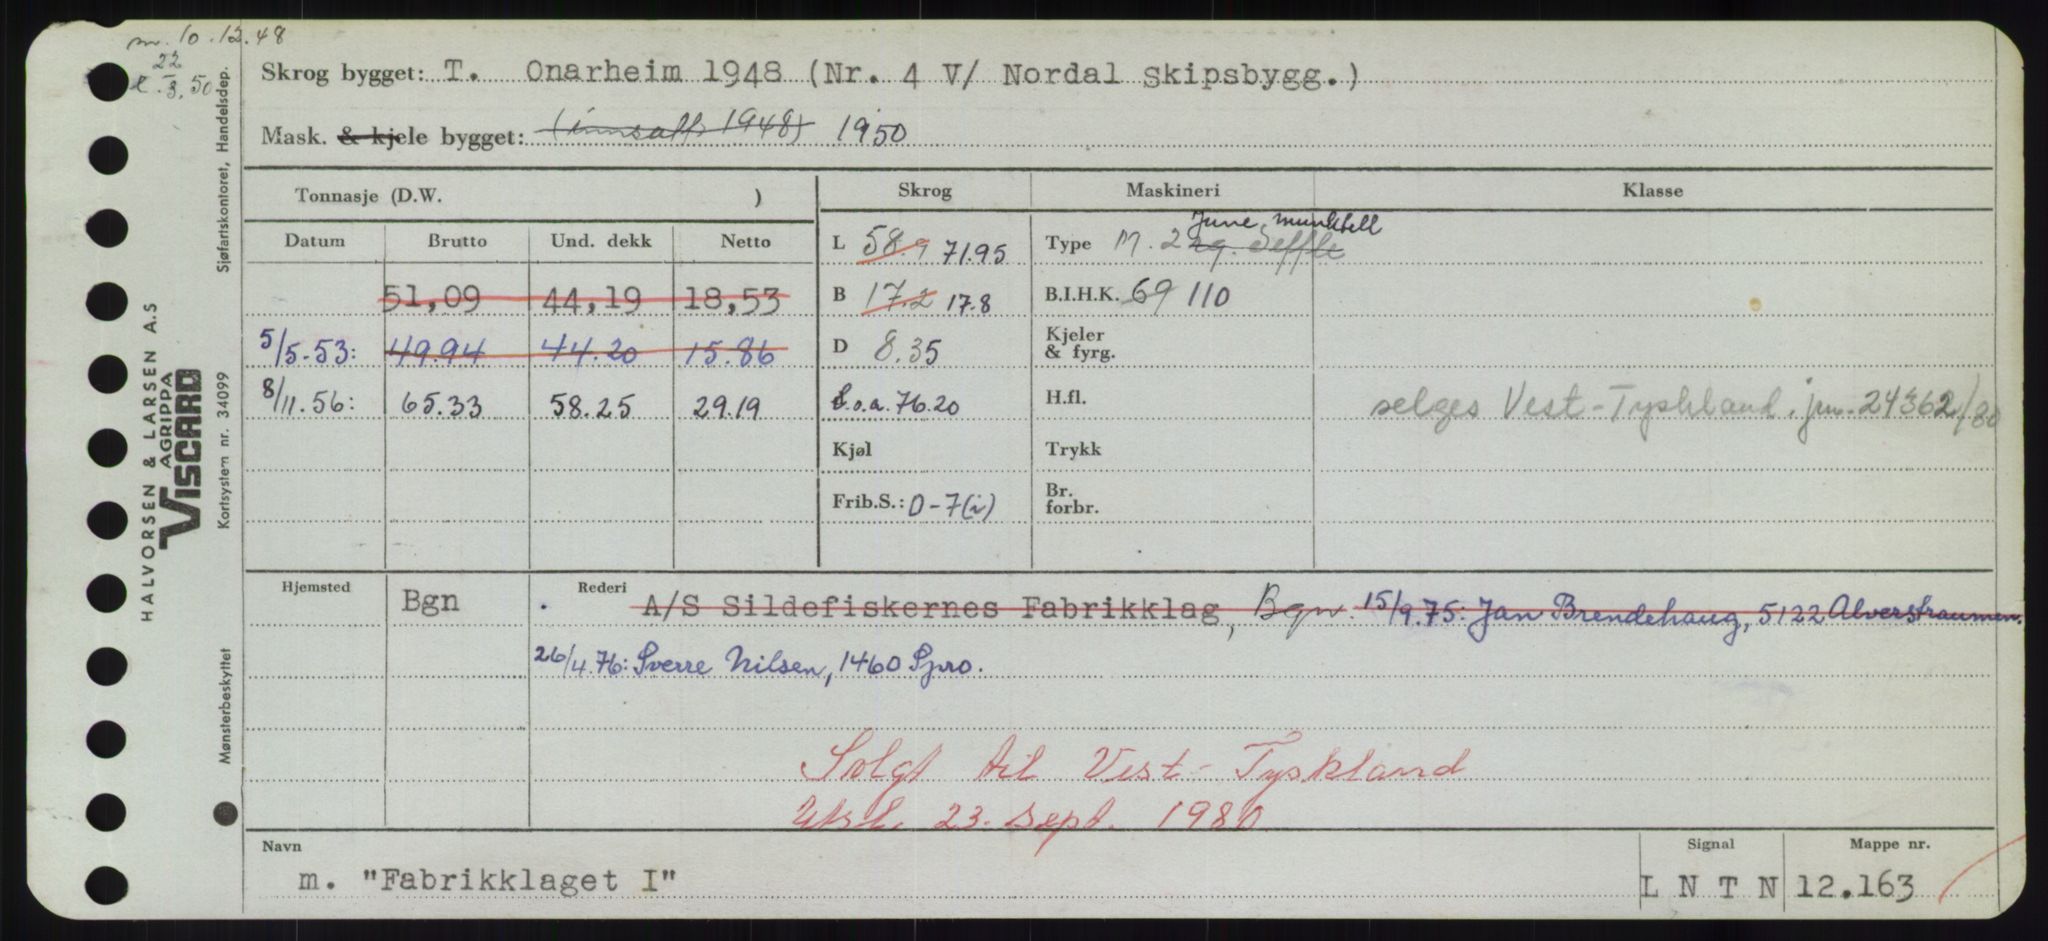 m. 10.12.48
22
3.50
Skrog bygget: T. Onarheim 1948 (Nr. 4 V/ Nordal Skipsbygg.)
Mask. & kjele bygget: (innsatt 1948) 1950
Tonnasje (D.W. )
Skrog
Maskineri
Klasse
Datum
Brutto
Und. dekk
Netto
L 58.9 71.95
Type M. 2 June Munktell
B 17.2 17.8
B.I.H.K. 69 110
51,09 44,19 18,53
5/5-53: 49.94 44.20 15.86
D 8.35
Kjeler & fyrg.
8/11.56: 65.33 58.25 29.19
L.o.a. 76.20
H.fl.
selges Vest-Tyskland. jnr. 24362/80
Kjøl
Trykk
Frib.S.: 0-7(i)
Br. forbr.
Hjemsted
Bgn
Rederi
A/S Sildefiskernes Fabrikklag, Bgn. 15/9.75: Jan Brendehaug, 5122 Alverstraumen.
26/4.76: Sverre Nilsen, 1460 Spro.
Solgt til Vest-Tyskland
Utsl. 23. sept. 1980
Navn
m. "Fabrikklaget I"
Signal
LNTN
Mappe nr.
12.163
HALVORSEN & LARSEN A.S
AGRIPPA
VISCARD
Mønsterbeskyttet
Kortsystem nr. 34099
Sjøfartskontoret, Handelsdep.